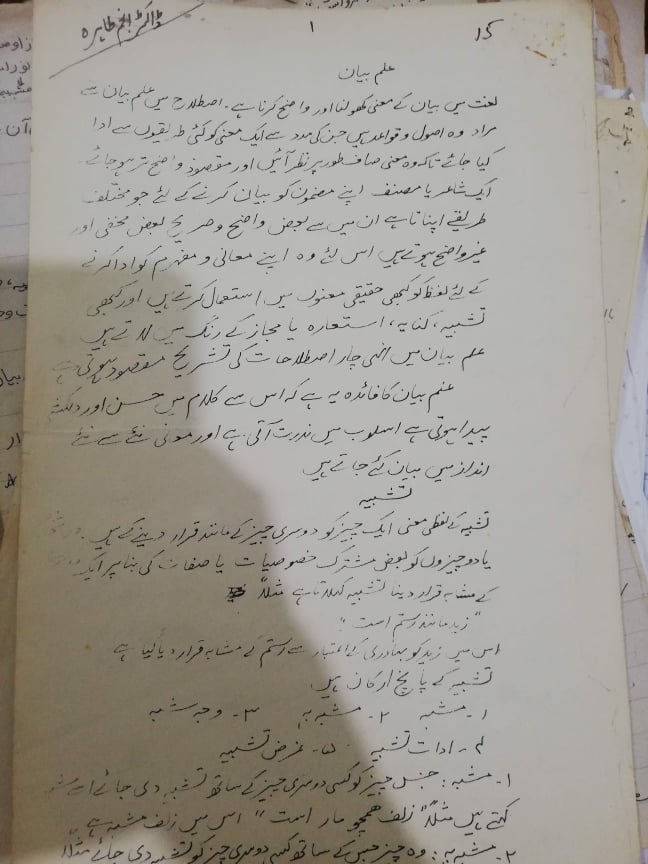 ڈاکٹر انجم طاہرہ
۱
15
علم بیان
لغت میں بیان کے معنی کھولنا اور واضح کرنا ہے۔ اصطلاح میں علم بیان سے
مراد وہ اصول و قواعد ہیں جن کی مدد سے ایک معنی کو کئی طریقوں سے ادا
کیا جائے تاکہ وہ معنی صاف طور پر نظر آئیں اور مقصود واضح تر ہو جائے۔
ایک شاعر یا مصنف اپنے مضمون کو بیان کرنے کے لئے جو مختلف
طریقے اپناتا ہے ان میں سے بعض واضح و صریح بعض مخفی اور
غیر واضح ہوتے ہیں اس لئے وہ اپنے معانی و مفہوم کو ادا کرنے
کے لئے لفظ کو کبھی حقیقی معنوں میں استعمال کرتے ہیں اور کبھی
تشبیہ، کنایہ، استعارہ یا مجاز کے رنگ میں لاتے ہیں
علم بیان میں انہی چار اصطلاحات کی تشریح مقصود ہوتی ہے
علم بیان کا فائدہ یہ ہے کہ اس سے کلام میں حسن اور دلکشی
پیدا ہوتی ہے اسلوب میں ندرت آتی ہے اور معنی نئے سے نئے
انداز میں بیان کئے جاتے ہیں
تشبیہ
تشبیہ کے لفظی معنی ایک چیز کو دوسری چیز کے مانند قرار دینے کے ہیں۔
یا دو چیزوں کو بعض مشترک خصوصیات یا صفات کی بنا پر ایک
کے مشابہ قرار دینا تشبیہ کہلاتا ہے مثلاً
"زید مانند رستم است"
اس میں زید کو بہادری کے اعتبار سے رستم کے مشابہ قرار دیا گیا ہے
تشبیہ کے پانچ ارکان ہیں
۱۔ مشبہ ۲۔ مشبہ بہ ۳۔ وجہ شبہ
۴۔ ادات تشبیہ ۵۔ غرض تشبیہ
۱۔ مشبہ: جس چیز کو کسی دوسری چیز کے ساتھ تشبیہ دی جائے اسے
کہتے ہیں مثلاً "زلف ہمچو مار است" اس میں زلف مشبہ ہے
۲۔ مشبہ بہ: وہ چیز جس کے ساتھ کسی دوسری چیز کو تشبیہ دی جائے مثلاً